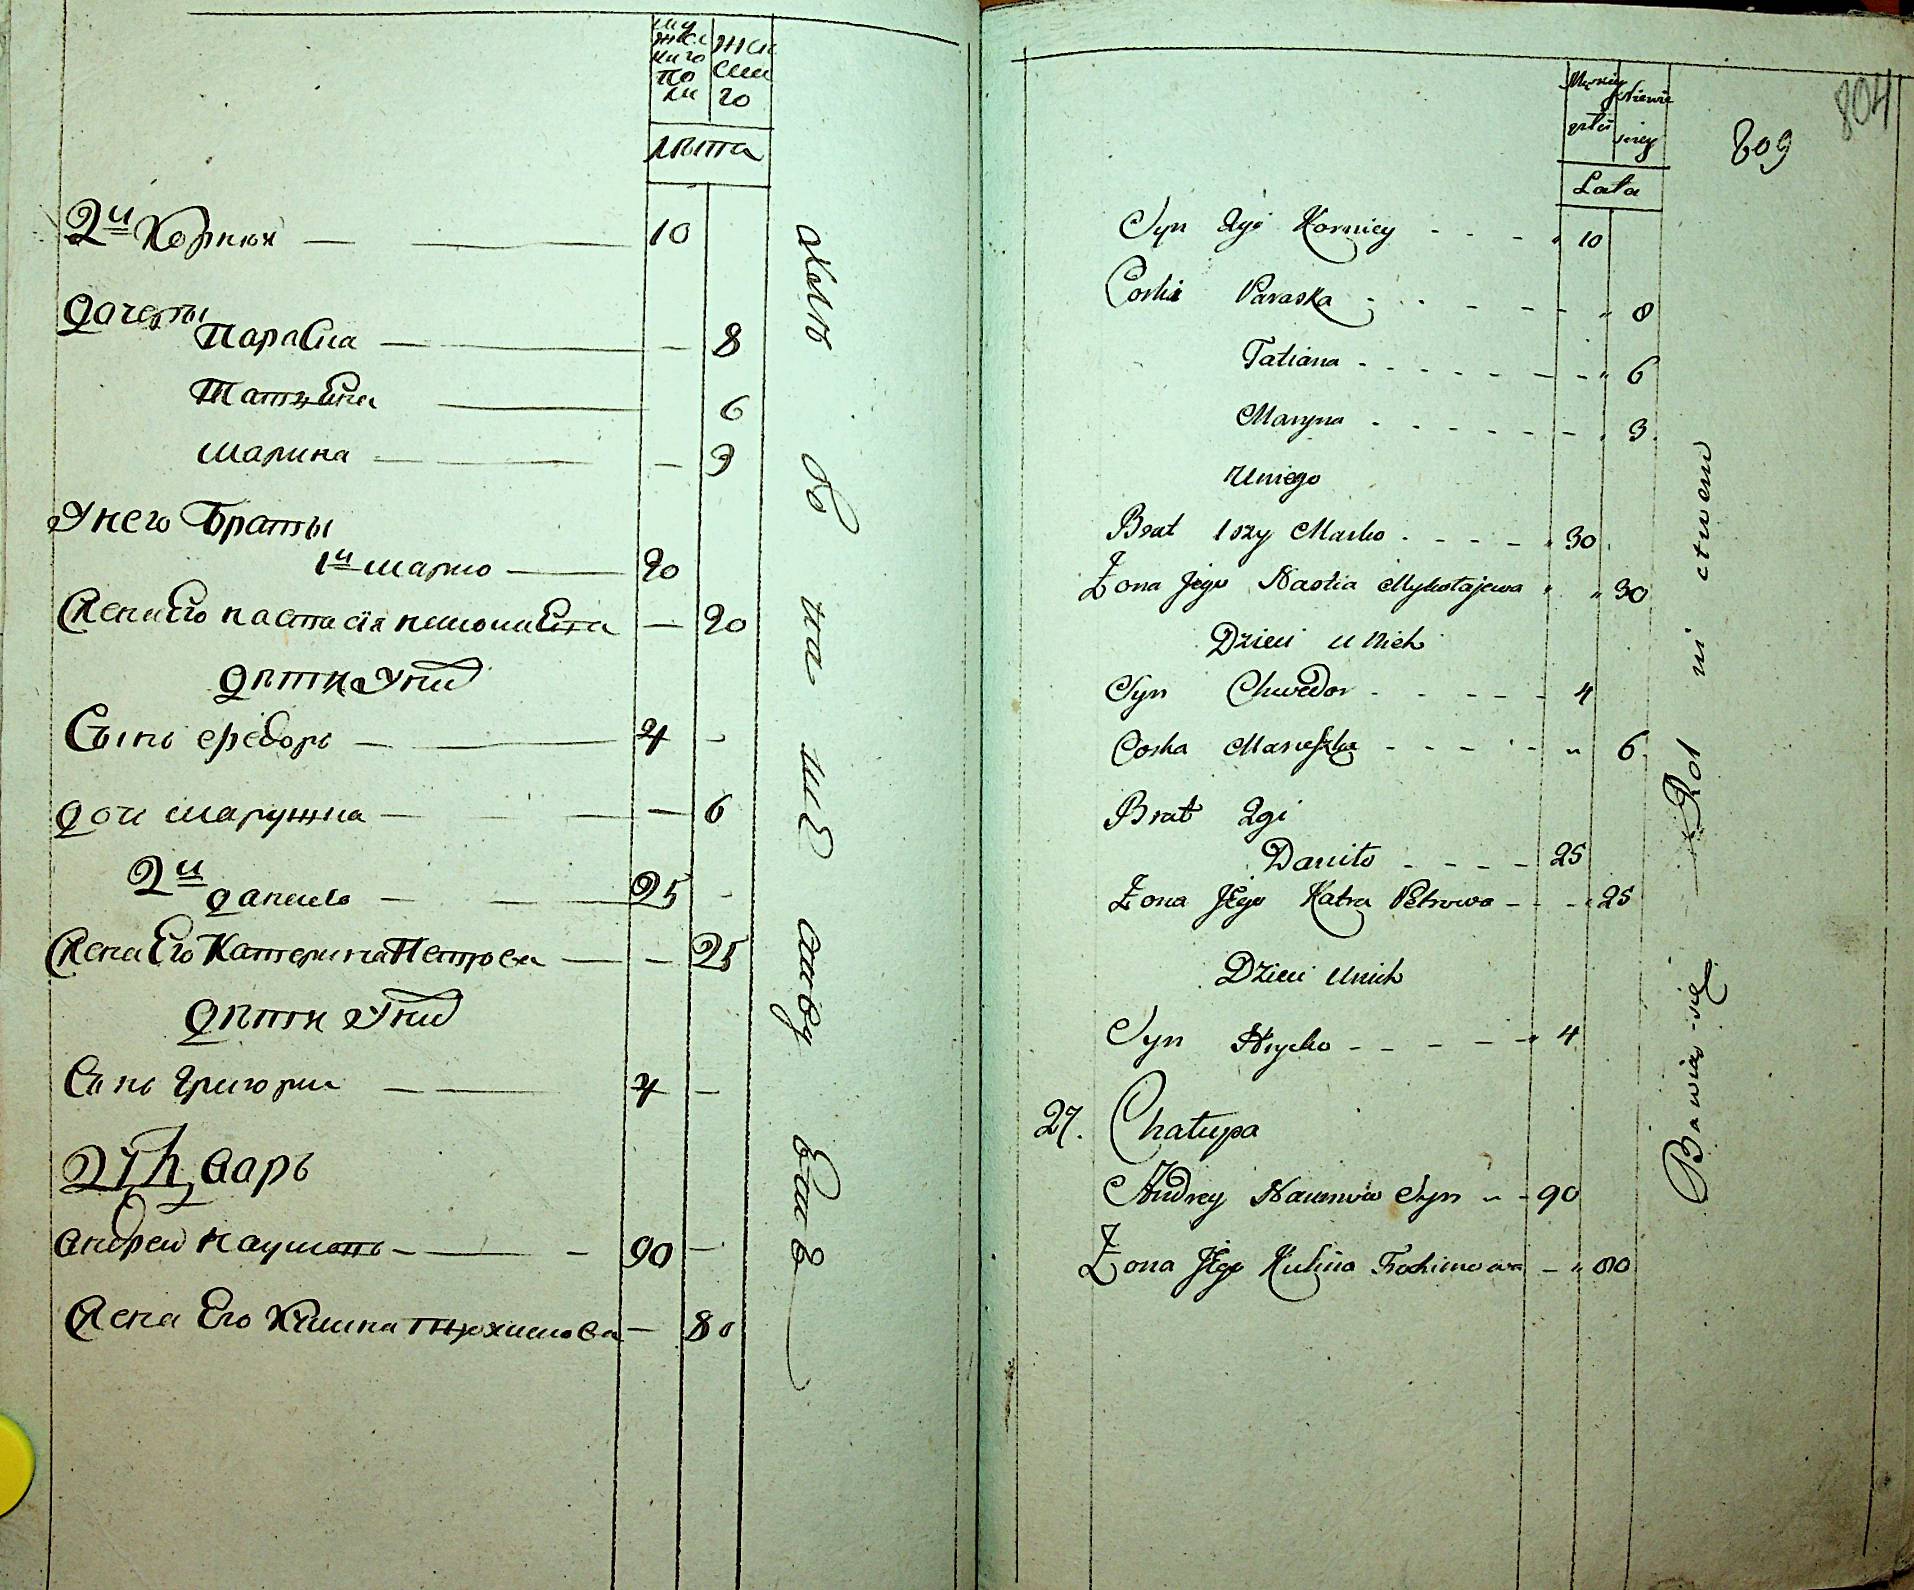 му
жес
каго
по
ла
жен
ска
го
лѣта
2й Корнѣй 10
дочеры
Параска 8
Татияна 6
Марина 3
У него Браты
1й Марко 30
Жена Его Настасия 30
дѣти У них
Сынъ Федоръ 4
дочь Марушка 6
2й
данило 25
Жена Его Катерина Петрова 25
дѣти У них
Сынъ Григорий 4
27 дваръ
андрей Наумовъ 90
Жена Его Кулина Трохимова 80
Lata
809
804
Syn 2gi Korniey 10
Corki Paraska 8
Tatiana 6
Maryna 3
U niego
Brat 1szy Marko 30
Żona Jego Nastia Mykołajewa 30
Dzieci u Nich
Syn Chwedor 4
Corka Maruszka 6
Brat 2gi
Daniło 25
Żona Jego Katra Petrowa 25
Dzieci u nich
Syn Hryćko 4
27. Chałupa
Andrey Naumów Syn 90
Żona Jego Kulina Trochimowa 80
Bawią się Rol ni ctwem